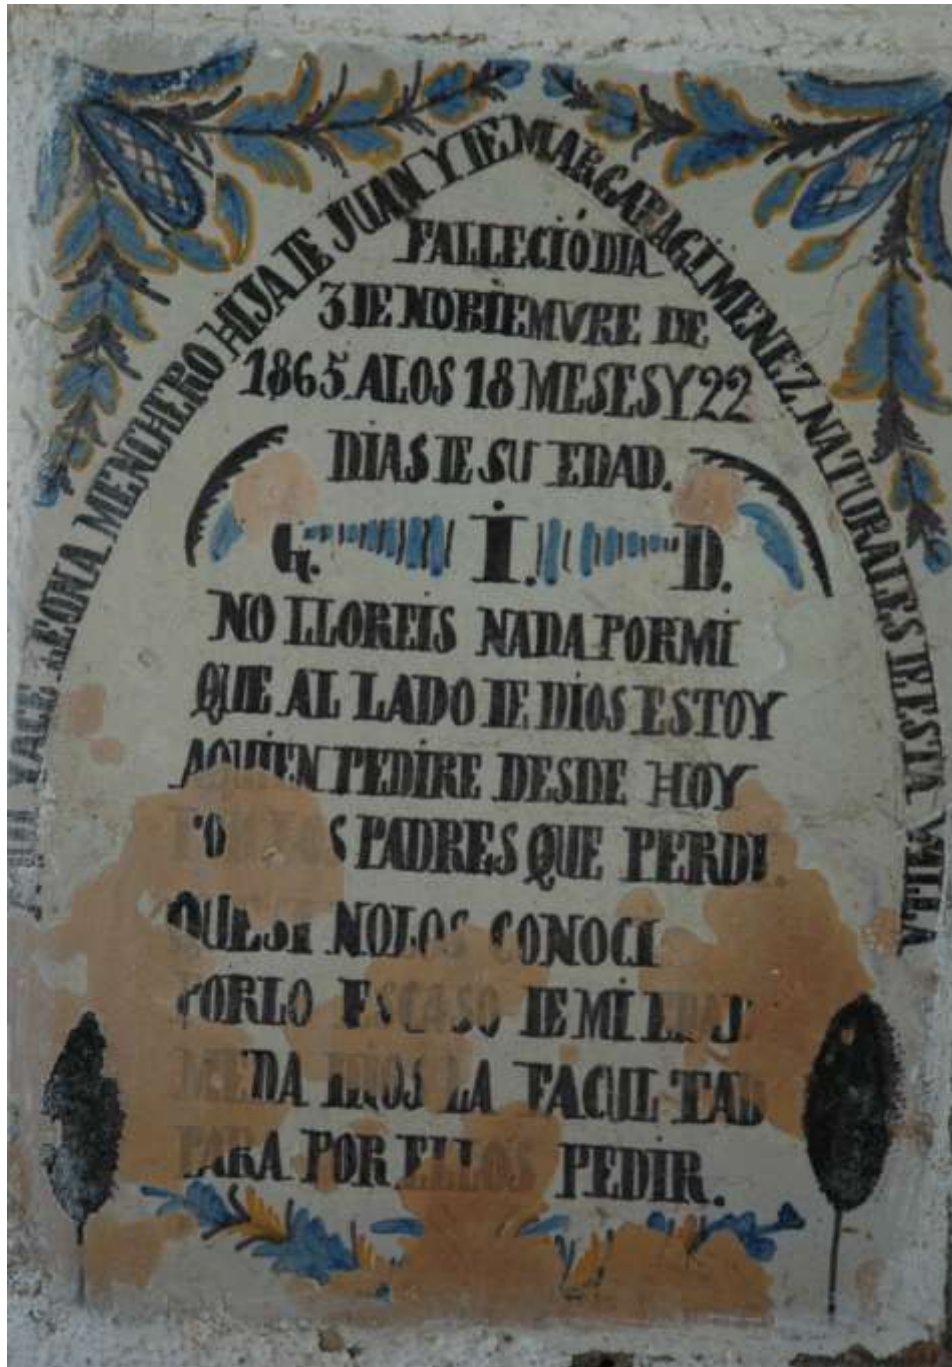 YACE LEONA MENCHERO HIJA DE JUAN Y DE MARGARA GIMENEZ NATURALES DE ESTA VILLA
FALLECIÓ DIA
3 DE NOBIEMVRE DE
1865 A LOS 18 MESES Y 22
DIAS DE SU EDAD.
G. I. D.
NO LLOREIS NADA POR MI
QUE AL LADO DE DIOS ESTOY
AQUIEN PEDIRE DESDE HOY
PADRES QUE PERDI
QUE SI NO LOS CONOCI
POR LO ESCASO DE MI EDAD
ME DA DIOS LA FACULTAD
PARA POR ELLOS PEDIR.